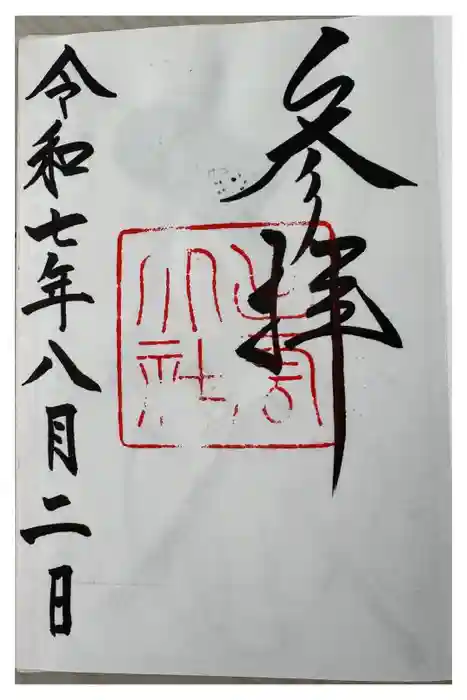 参拝
大社
令和七年八月二日